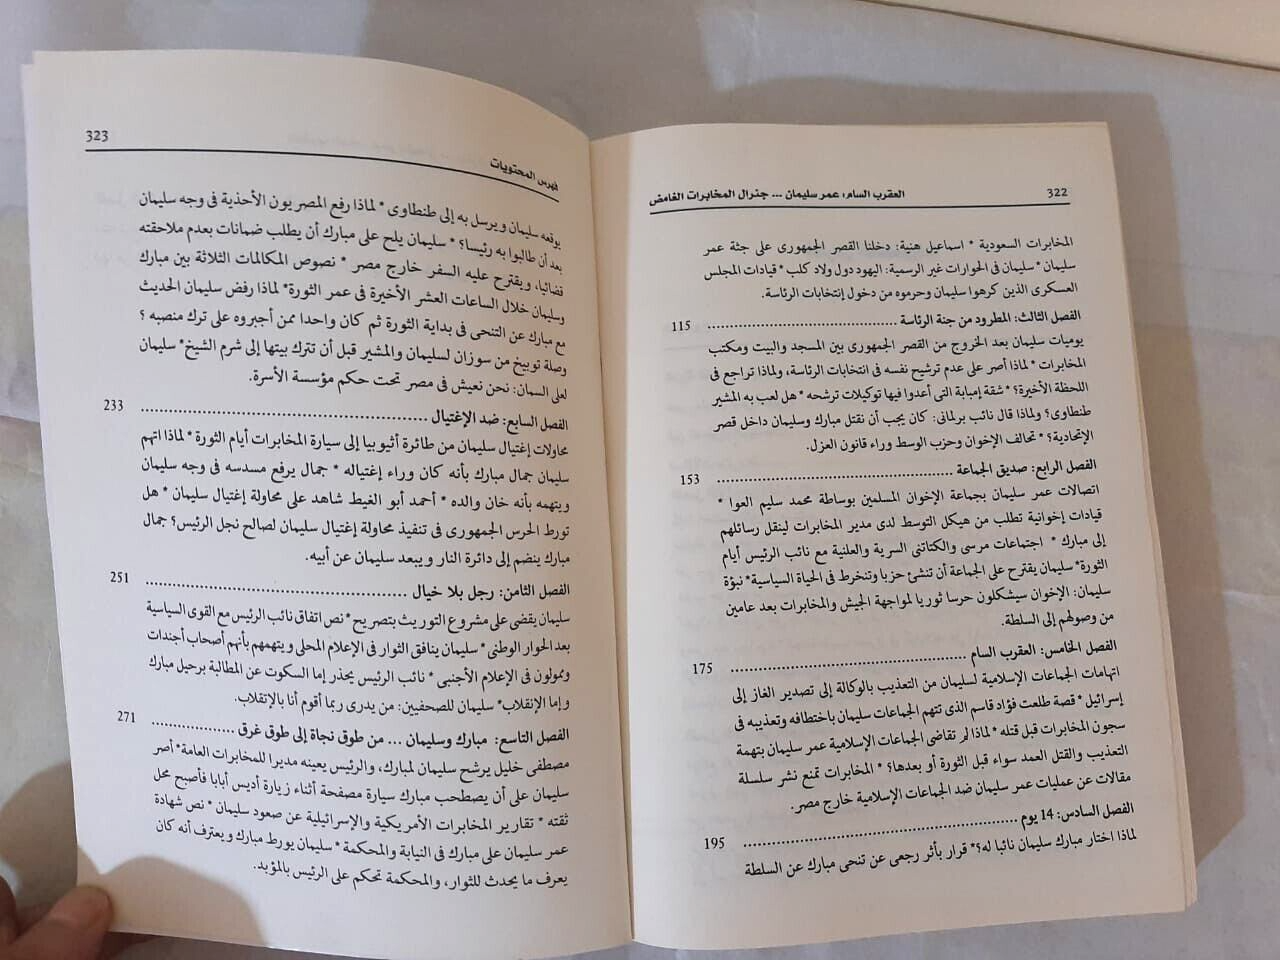 322
العقرب السام: عمر سليمان ... جنرال المخابرات الغامض
المخابرات السعودية * اسماعيل هنية: دخلنا القصر الجمهورى على جثة عمر
سليمان * سليمان فى الحوارات غير الرسمية: اليهود دول ولاد كلب * قيادات المجلس
العسكرى الذين كرهوا سليمان وحرموه من دخول إنتخابات الرئاسة.
الفصل الثالث: المطرود من جنة الرئاسة ........................................ 115
يوميات سليمان بعد الخروج من القصر الجمهورى بين المسجد والبيت ومكتب
المخابرات * لماذا أصر على عدم ترشيح نفسه فى انتخابات الرئاسة، ولماذا تراجع فى
اللحظة الأخيرة؟ * شقة إمبابة التى أعدوا فيها توكيلات ترشحه * هل لعب به المشير
طنطاوى؟ ولماذا قال نائب برلمانى: كان يجب أن نقتل مبارك وسليمان داخل قصر
الإتحادية؟ * تحالف الإخوان وحزب الوسط وراء قانون العزل.
الفصل الرابع: صديق الجماعة ........................................ 153
اتصالات عمر سليمان بجماعة الإخوان المسلمين بوساطة محمد سليم العوا *
قيادات إخوانية تطلب من هيكل التوسط لدى مدير المخابرات لينقل رسائلهم
إلى مبارك * اجتماعات مرسى والكتاتنى السرية والعلنية مع نائب الرئيس أيام
الثورة* سليمان يقترح على الجماعة أن تنشئ حزبا وتنخرط فى الحياة السياسية* نبؤة
سليمان: الإخوان سيشكلون حرسا ثوريا لمواجهة الجيش والمخابرات بعد عامين
من وصولهم إلى السلطة.
الفصل الخامس: العقرب السام ........................................ 175
اتهامات الجماعات الإسلامية لسليمان من التعذيب بالوكالة إلى تصدير الغاز إلى
إسرائيل * قصة طلعت فؤاد قاسم الذى تتهم الجماعات سليمان باختطافه وتعذيبه فى
سجون المخابرات قبل قتله * لماذا لم تقاضى الجماعات الإسلامية عمر سليمان بتهمة
التعذيب والقتل العمد سواء قبل الثورة أو بعدها؟ * المخابرات تمنع نشر سلسلة
مقالات عن عمليات عمر سليمان ضد الجماعات الإسلامية خارج مصر.
الفصل السادس: 14 يوم ........................................ 195
لماذا اختار مبارك سليمان نائبا له؟* قرار بأثر رجعى عن تنحى مبارك عن السلطة
323
فهرس المحتويات
يوقعه سليمان ويرسل به إلى طنطاوى * لماذا رفع المصريون الأحذية فى وجه سليمان
بعد أن طالبوا به رئيسا؟ * سليمان يلح على مبارك أن يطلب ضمانات بعدم ملاحقته
قضائيا، ويقترح عليه السفر خارج مصر * نصوص المكالمات الثلاثة بين مبارك
وسليمان خلال الساعات العشر الأخيرة فى عمر الثورة* لماذا رفض سليمان الحديث
مع مبارك عن التنحى فى بداية الثورة ثم كان واحدا ممن أجبروه على ترك منصبه ؟
وصلة توبيخ من سوزان لسليمان والمشير قبل أن تترك بيتها إلى شرم الشيخ* سليمان
لعلى السمان: نحن نعيش فى مصر تحت حكم مؤسسة الأسرة.
الفصل السابع: ضد الإغتيال ........................................ 233
محاولات إغتيال سليمان من طائرة أثيوبيا إلى سيارة المخابرات أيام الثورة * لماذا اتهم
سليمان جمال مبارك بأنه كان وراء إغتياله * جمال يرفع مسدسه فى وجه سليمان
ويتهمه بأنه خان والده * أحمد أبو الغيط شاهد على محاولة إغتيال سليمان * هل
تورط الحرس الجمهورى فى تنفيذ محاولة إغتيال سليمان لصالح نجل الرئيس؟ جمال
مبارك ينضم إلى دائرة النار ويبعد سليمان عن أبيه.
الفصل الثامن: رجل بلا خيال ........................................ 251
سليمان يقضى على مشروع التوريث بتصريح * نص اتفاق نائب الرئيس مع القوى السياسية
بعد الحوار الوطنى * سليمان ينافق الثوار فى الإعلام المحلى ويتهمهم بأنهم أصحاب أجندات
وممولون فى الإعلام الأجنبى * نائب الرئيس يحذر إما السكوت عن المطالبة برحيل مبارك
وإما الإنقلاب* سليمان للصحفيين: من يدرى ربما أقوم أنا بالانقلاب.
الفصل التاسع: مبارك وسليمان ... من طوق نجاة إلى طوق غرق .................... 271
مصطفى خليل يرشح سليمان لمبارك، والرئيس يعينه مديرا للمخابرات العامة* أصر
سليمان على أن يصطحب مبارك سيارة مصفحة أثناء زيارة أديس أبابا فأصبح محل
ثقته * تقارير المخابرات الأمريكية والإسرائيلية عن صعود سليمان * نص شهادة
عمر سليمان على مبارك فى النيابة والمحكمة * سليمان يورط مبارك ويعترف أنه كان
يعرف ما يحدث للثوار، والمحكمة تحكم على الرئيس بالمؤبد.